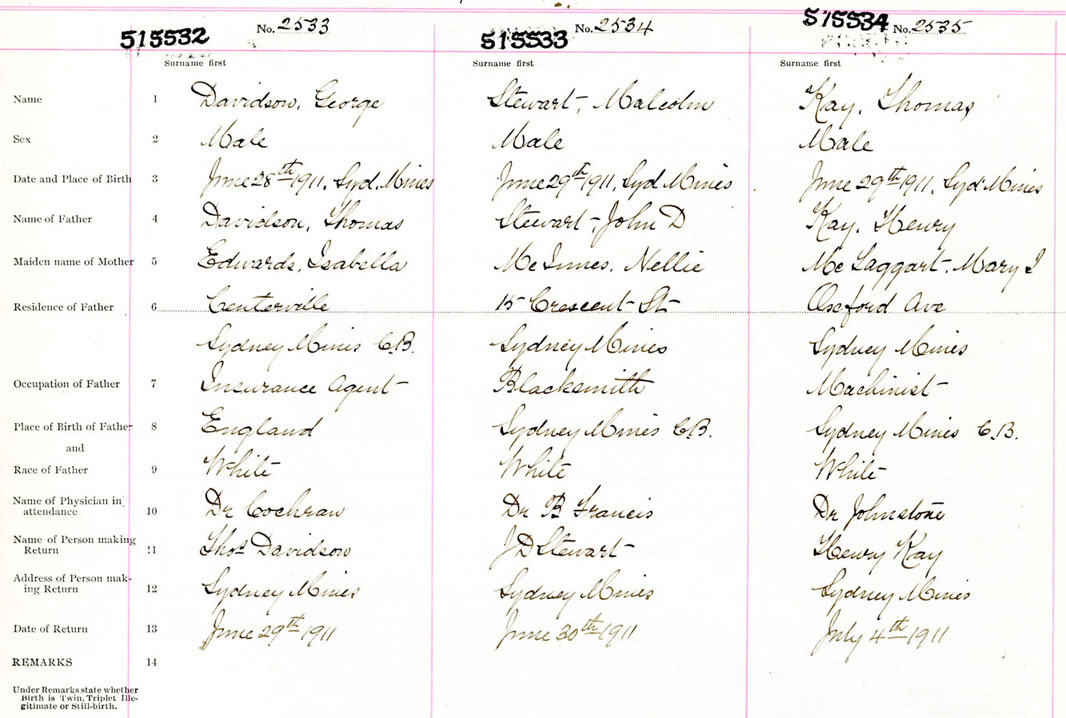 No. 2533 No. 2534 No. 2535
515532 515533 515534
Surname first Surname first Surname first
Name 1 Davidson, George Stewart, Malcolm Kay, Thomas
Sex 2 Male Male Male
Date and Place of Birth 3 June 28th 1911, Syd. Mines June 29th 1911, Syd Mines June 29th 1911, Syd. Mines
Name of Father 4 Davidson, Thomas Stewart, John D Kay, Henry
Maiden name of Mother 5 Edwards, Isabella Mc Innes, Nellie Mc Taggart, Mary J
Residence of Father 6 Centerville 15 Crescent St Oxford Ave
Sydney Mines C.B. Sydney Mines Sydney Mines
Occupation of Father 7 Insurance Agent Blacksmith Machinist
Place of Birth of Father 8 England Sydney Mines C.B. Sydney Mines C.B.
and
Race of Father 9 White White White
Name of Physician in
attendance 10 Dr Cochran Dr B Francis Dr Johnstone
Name of Person making
Return 11 Thos Davidson J D Stewart Henry Kay
Address of Person mak-
ing Return 12 Sydney Mines Sydney Mines Sydney Mines
Date of Return 13 June 29th 1911 June 30th 1911 July 4th 1911
REMARKS 14
Under Remarks state whether
Birth is Twin, Triplet Ille-
gitimate or Still-birth.